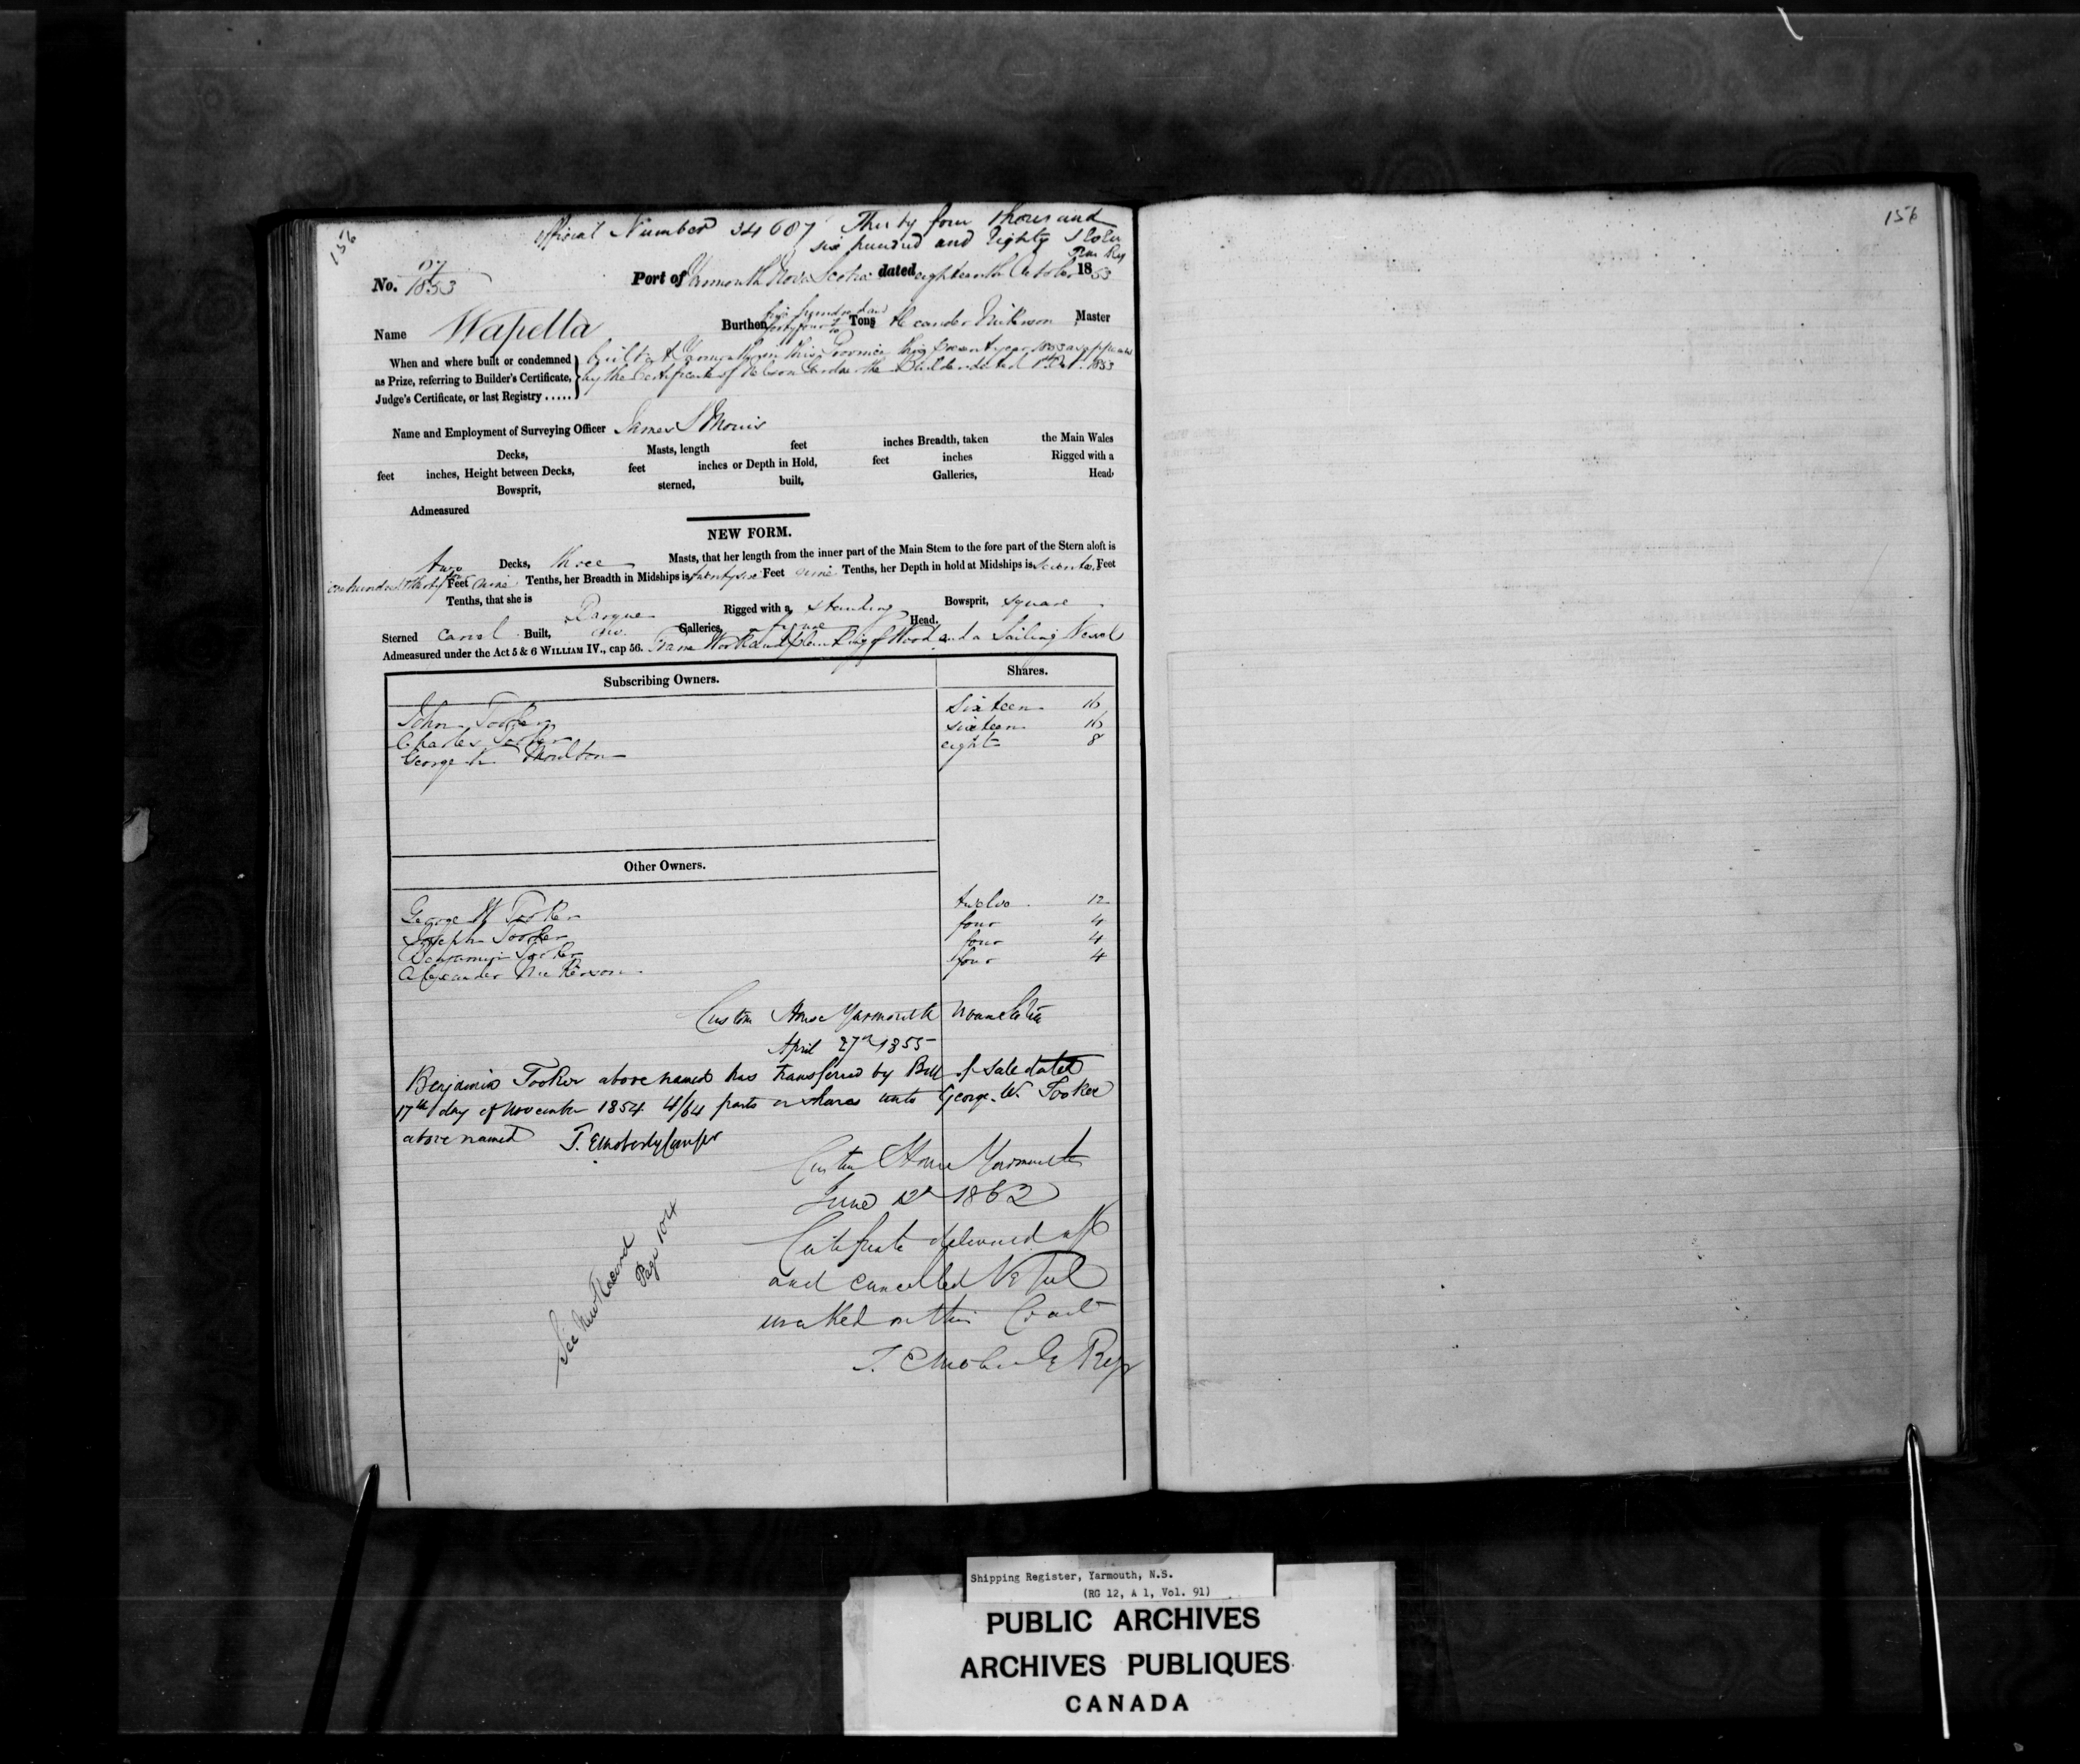 156
Official Number 34687 Thirty four thousand
six hundred and Eighty Seven
156
No. 27/1853 Port of Yarmouth Nova Scotia dated eighteenth October 1853
Name Wapella Burthen forty four Tons Alexander Nickerson Master
When and where built or condemned
as Prize, referring to Builder's Certificate,
Judge's Certificate, or last Registry .....
built at Yarmouth in this Province this present year 1853 as appears
by the Certificate of Nelson the Builder dated 1853
Name and Employment of Surveying Officer James
Decks, Masts, length feet inches Breadth, taken the Main Wales
feet inches, Height between Decks, feet inches or Depth in Hold, feet inches Rigged with a
Bowsprit, sterned, built, Galleries, Head,
Admeasured
NEW FORM.
two Decks, three Masts, that her length from the inner part of the Main Stem to the fore part of the Stern aloft is
one hundred thirty Feet nine Tenths, her Breadth in Midships is twenty six Feet nine Tenths, her Depth in hold at Midships is Feet
Tenths, that she is Barque Rigged with a standing Bowsprit, square
Sterned Carvel Built, no Galleries, figure Head,
Admeasured under the Act 5 & 6 WILLIAM IV., cap 56. Frame Work and planking of Wood and a Sailing Vessel
Subscribing Owners. Shares.
John Tooker sixteen 16
Charles Tooker sixteen 16
George Moulton eight 8
Other Owners.
George W Tooker twelve 12
Joseph Tooker four 4
Benjamin Tooker four 4
Alexander Nickerson four 4
Custom House Yarmouth Nova Scotia
April 27th 1855
Benjamin Tooker above named has transferred by Bill of Sale dated
17th day of November 1854 4/64 parts or shares unto George. W. Tooker
above named T. E Moberly
Custom House Yarmouth
June 12 1862
Certificate delivered up
and cancelled Vessel
wrecked on this Coast
T. E Moberly Regr
See New Record
Page 104
Shipping Register, Yarmouth, N.S.
(RG 12, A 1, Vol. 91)
PUBLIC ARCHIVES
ARCHIVES PUBLIQUES
CANADA